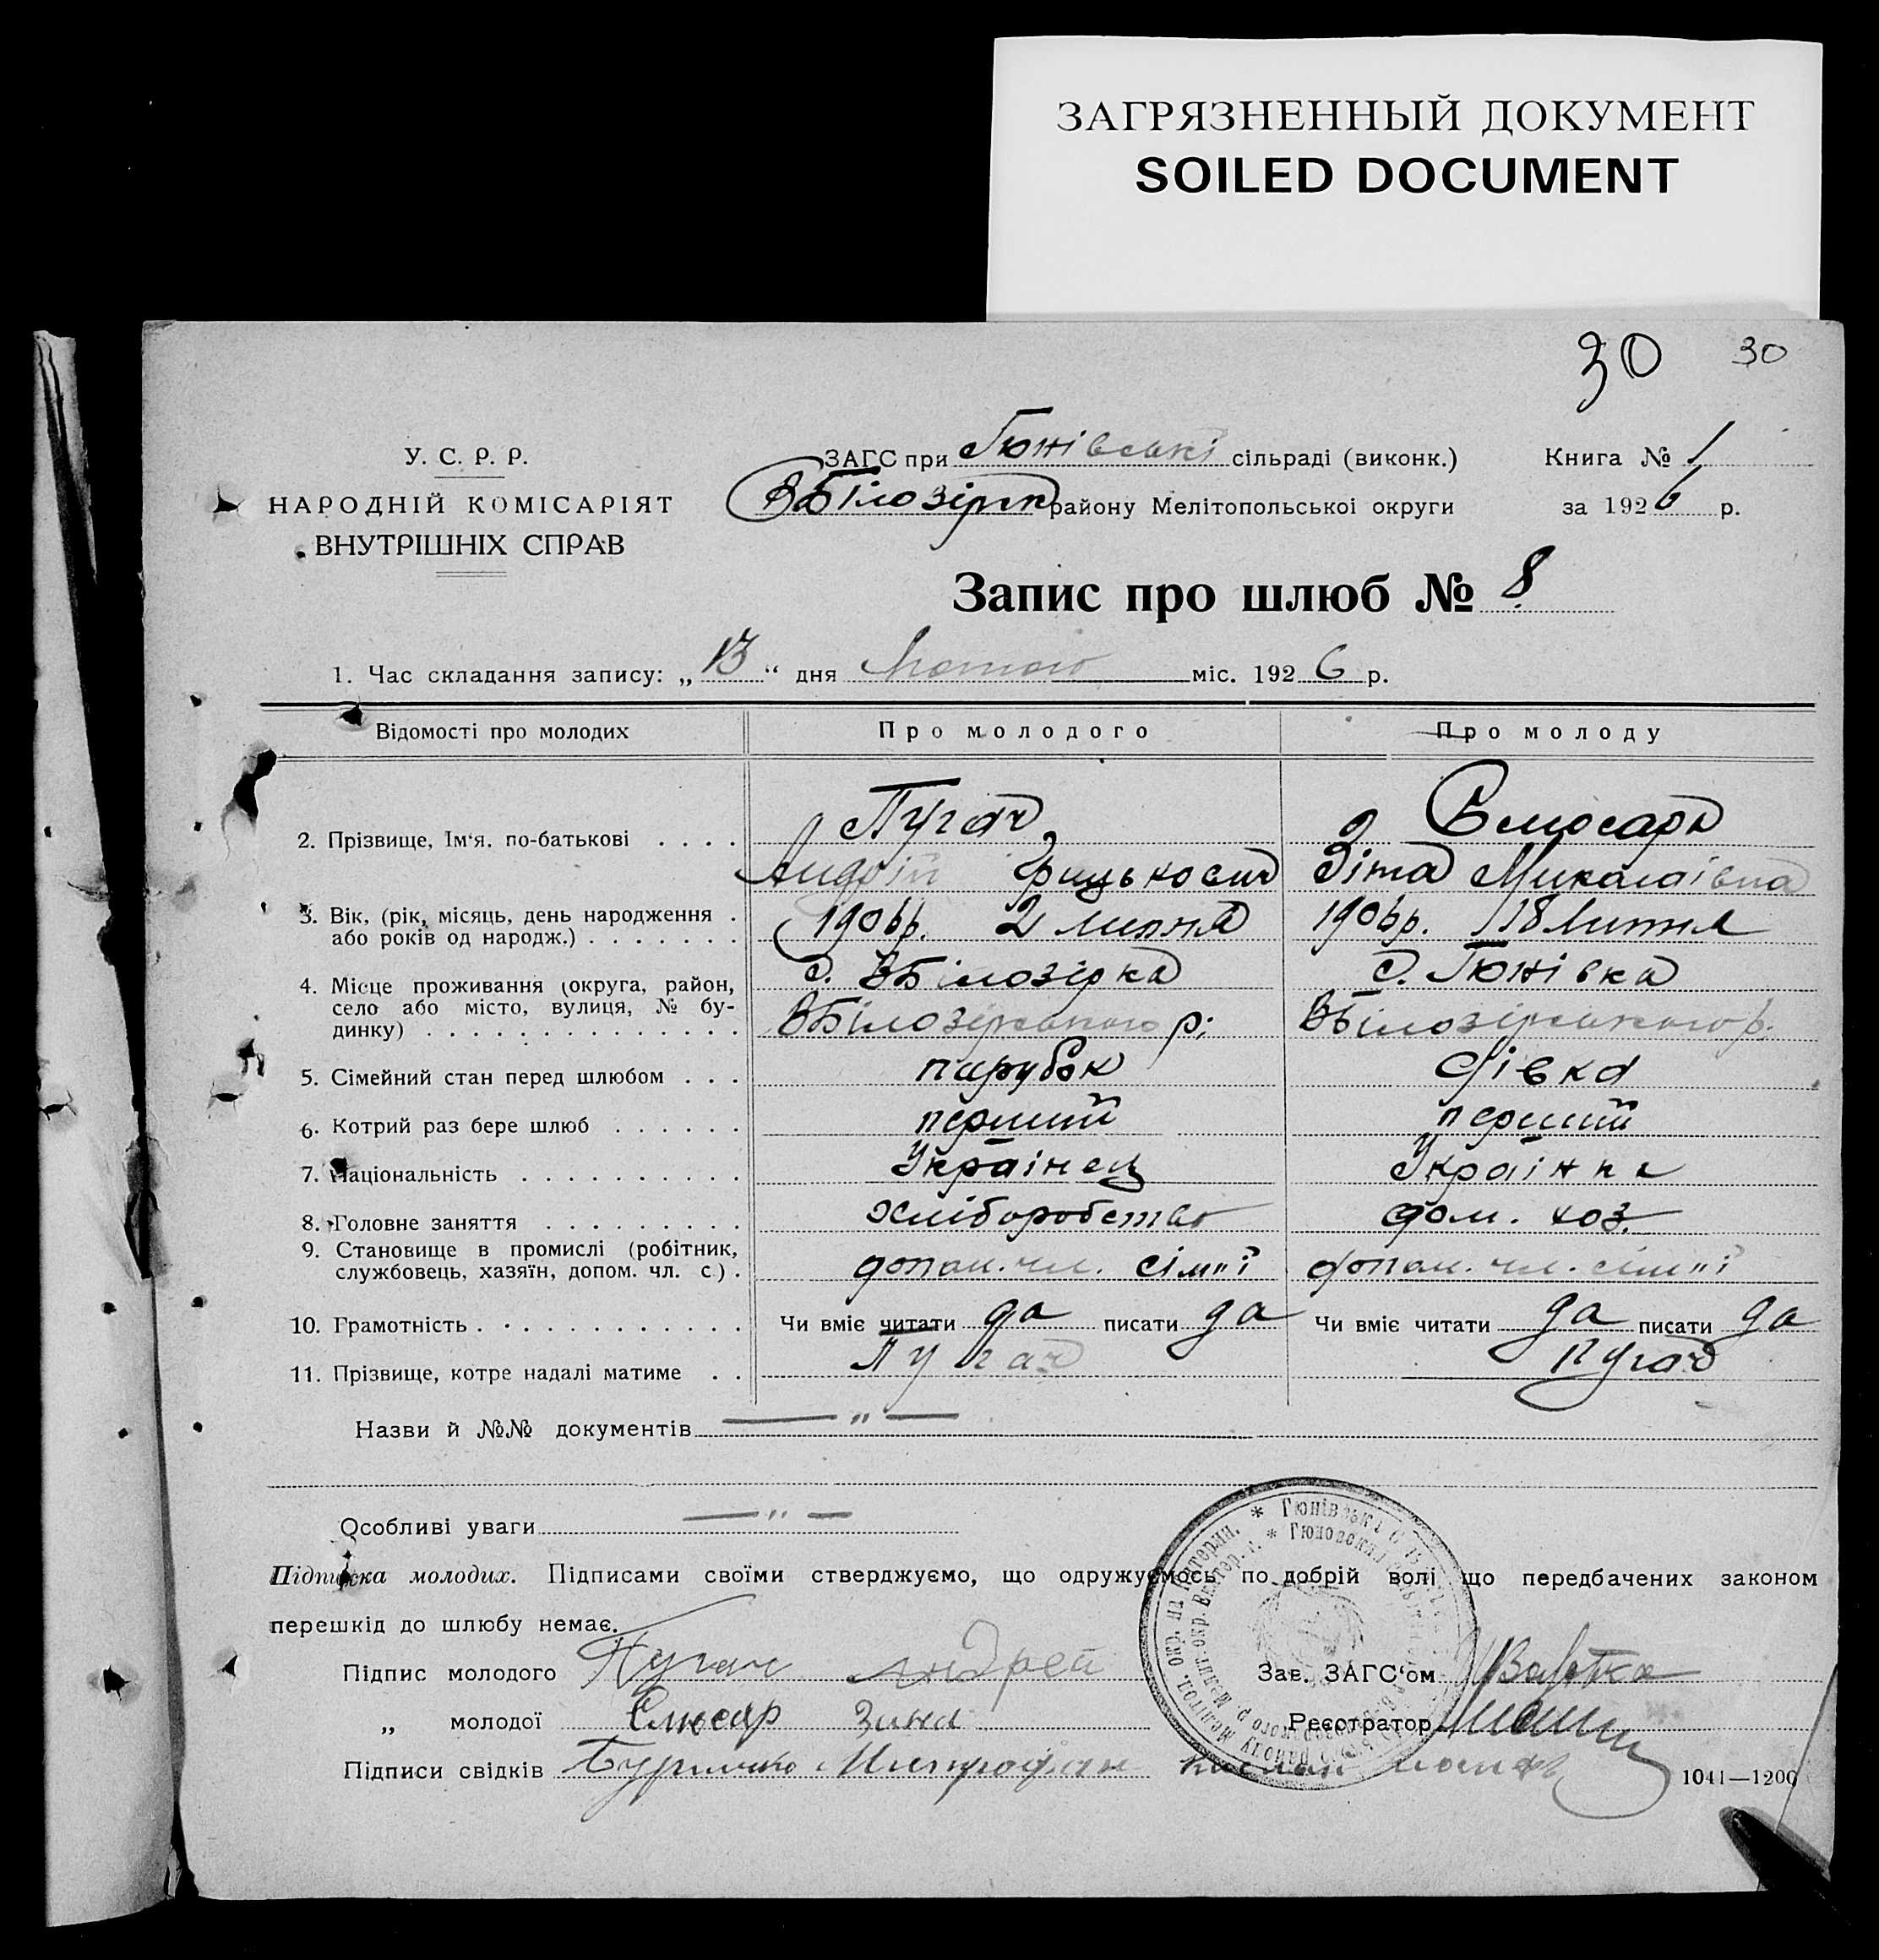 ЗАГРЯЗНЕННЫЙ ДОКУМЕНТ
SOILED DOCUMENT
30 30
У. С. Р. Р.
НАРОДНІЙ КОМІСАРІЯТ
ВНУТРІШНІХ СПРАВ
ЗАГС при Гюнівські сільраді (виконк.) Книга № 1
ВБілозірк району Мелітопольскої округи за 1926 р.
Запис про шлюб № 8
1. Час складання запису: „ 13 “ дня Лютого міс. 1926 р.
Відомості про молодих Про молодого Про молоду
2. Прізвище, Ім‘я. по-батькові Пугач Слюсарь
Андрій Грицькович Зіна Миколаівна
3. Вік, (рік, місяць, день народження або років од народж.) 1906р. 2 липня 1906р. 18 Липня
4. Місце проживання (округа, район, село або місто, вулиця, № будинку) с. ВБілозірка с. Гюнівка
ВБілозірського р. ВБілозірського р.
5. Сімейний стан перед шлюбом парубок дівка
6. Котрий раз бере шлюб перший перший
7. Національність Українец Українка
8. Головне заняття хліборобство дом. хоз.
9. Становище в промислі (робітник, службовець, хазяїн, допом. чл. с.) допом. чл. сім"ї допом. чл. сім"ї
10. Грамотність Чи вміє читати да писати да Чи вміє читати да писати да
11. Прізвище, котре надалі матиме Пугач Пугач
Назви й №№ документів — " —
Особливі уваги — " —
Підписка молодих. Підписами своїми стверджуємо, що одружуємось по добрій волі що передбачених законом
перешкід до шлюбу немає.
Підпис молодого Пугач Андрей Зав. ЗАГС‘ом
„ молодої Слюсар Зина Реєстратор
Підписи свідків Митрофан
1041—1200